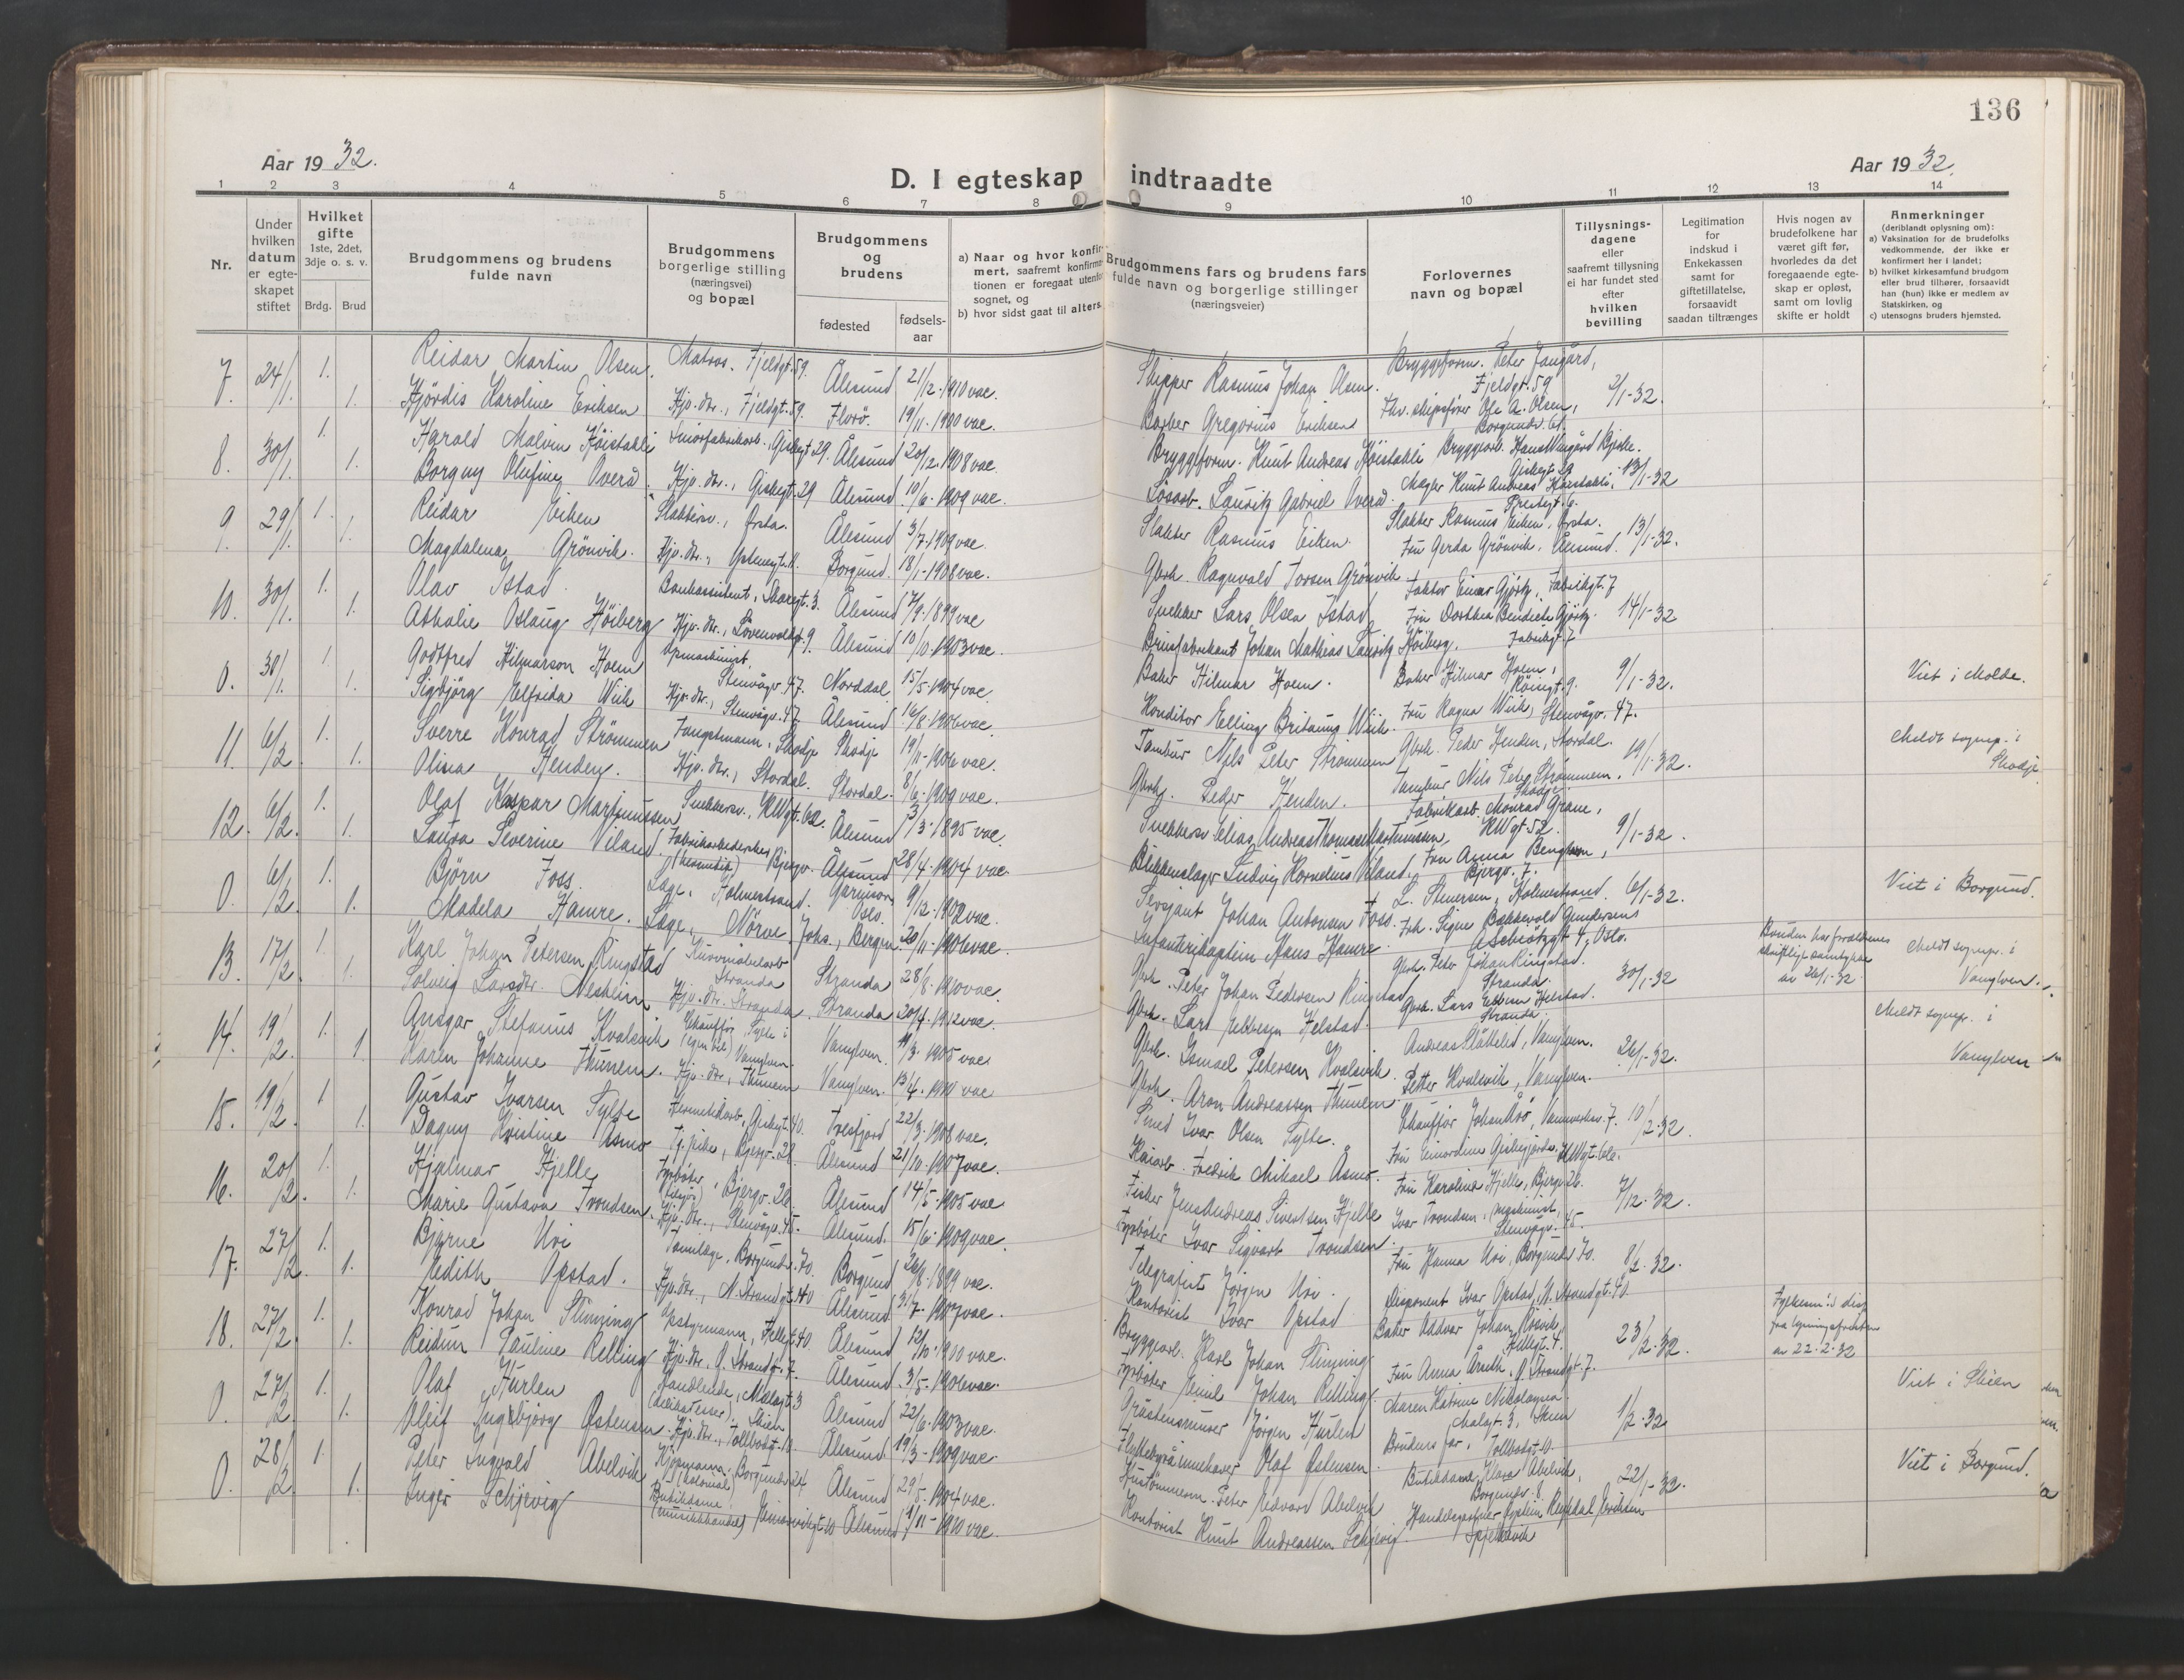 136
Aar 19 32.
D. I egteskap indtraadte
Aar 19 32.
1 2 3 4 5 6 7 8 9 10 11 12 13 14
Nr.
Under hvilken datum er egteskapet stiftet
Hvilket gifte 1ste, 2det, 3dje o. s. v.
Brdg. Brud
Brudgommens og brudens fulde navn
Brudgommens borgerlige stilling (næringsvei) og bopæl
Brudgommens og brudens
fødested
fødsels-aar
a) Naar og hvor konfirmert, saafremt
b) hvor sidst gaat til alters
Brudgommens fars og brudens fars fulde navn og borgerlige stillinger (næringsveier)
Forlovernes navn og bopæl
Tillysnings-dagene eller saafremt tillysning ei har fundet sted efter hvilken bevilling
Legitimation for indskud i Enkekassen samt for giftetillatelse, forsaavidt saadan tiltrænges
Hvis nogen av brudefolkene har været gift før, hvorledes da det foregaaende egteskap er opløst, samt om lovlig skifte er holdt
Anmerkninger (deriblandt oplysning om):
a) Vaksination for de brudefolks vedkommende, der ikke er konfirmert her i landet;
b) hvilket kirkesamfund brudgom eller brud tilhører, forsaavidt han (hun) ikke er medlem av Statskirken, og
c) utensogns bruders hjemsted.
7. 24/1. 1. Reidar Martin Olsen. Matros. Fjeldgt. 59. Ålesund 21/12-1910 vac. Skipper Rasmus Johan Olsen. Bryggeform. Peter Fjeldgt. 59. 2/1-32.
1. Hjördis Karoline Eriksen Hjv. dtr., Fjeldgt. 59. Florö. 19/11-1900 vac. Barber Gregorius Eriksen Fhv. skipsfører Ole A. Olsen, Borgundv. 61.
8. 30/1. 1. Harald Malvin Höistakli Giskegt 29. Ålesund 20/12-1908 vac. Bryggeform. Knut Andreas Höistakli Giskegt. 29. 13/1-32
1. Borguy Olufine Overå. Hjv. dtr., Giskegt. 29 Ålesund 10/6-1909 vac. Lösarb. Lauritz Gabriel Overå. Knut Andreas Höistakli,
9. 29/1. 1. Reidar Eiken Slaktersv., Ørsta. Ålesund 3/7-1909 vac. Slakter Rasmus Eiken. Slakter Rasmus Eiken, Ørsta. 13/1-32.
1. Magdalena Grönvik. Hjv. dtr., Borgund. 18/1-1908 vac. Gbrk. Ragnvald Torsen Grönvik Fru Gerda Grönvik, Ålesund.
10. 30/1. 1. Olav Istad. Bankassistent, Ålesund 7/9-1899 vac Snekker Lars Olsen Istad Faktor Einar Gjörtz, Fabrikgt. 7 14/1-32
1. Athalie Aslaug Höiberg Hjv. dtr., Lövenvoldgt. 9. Ålesund 10/10-1903 vac. Brusfabrikant Johan Mathias Lauritz Höiberg. Fru Dorthea Bendicte Gjörtz. Fabrikgt. 7
0. 30/1. 1. Godtfred Hilmarson Hoem Stenvågv. 47. Norddal. 15/5-1904 vac. Baker Hilmar Hoem. Baker Hilmar Hoem, 9/1-32. Viet i Molde.
1. Sigbjörg Elfrida Wiik Hjv. dtr., Stenvågv. 47 Ålesund. 16/8-1906 vac. Konditor Elling Britanus Wiik. Fru Ragna Wiik, Stenvågv. 47.
11. 6/2. 1. Sverre Konrad Strömmen Fangstmann, Skodje Skodje 19/11-1906 vac. Tambur Nils Peter Strömmen Gbrk. Peder Henden, Stordal. 19/1-32. Meldt sognep. i Skodje
1. Olina Henden. Hjv. dtr., Stordal. Stordal. 8/6-1909 vac. Gbrkj. Peder Henden. Tambur Nils Peter Strömmen. Skodje
12. 6/2. 1. Olaf Kaspar Martinussen Snekkersv., KWgt. 62. Ålesund 3/3-1895 vac. Snekkersv. Elias Andreas Thomas Martinussen Fabrikarb. Monrad Grane, KWgt. 52. 9/1-32.
1. Laura Severine Viland. Fabrikarbeiderske (hermetik) Bjergv. Ålesund 28/4-1904 vac. Blikkenslager Ludvig Kornelius Viland. Fru Anna Bengtson, Bjergv. 7.
0. 6/2. 1. Björn Foss. Læge, Holmestrand. Garnison Oslo. 9/12-1902 vac. Sersjant Johan Antonsen Foss. L. Stenersen, Holmestrand. 6/1-32. Viet i Borgund.
1. Madela Hamre. Læge, Nörve. Johs., Bergen 20/11-1906 vac Infanterikaptein Hans Hamre. Frk. Signe Bakkevold Gundersens 4, Oslo.
13. 17/2. 1. Karl Johan Petersen Ringstad Stranda Stranda 28/8-1910 vac. Gbrk. Peter Johan Pedersen Ringstad Gbrk. Peter Johan Ringstad. Stranda. 30/1-32 Bruden har forældrenes skriftlige samtykke av 26/1-32 Meldt sognepr. i Vanylven.
1. Solveig Larsdtr. Hjv. dtr. Stranda. Stranda 20/4-1912 vac. Gbrk. Lars Ebbesen Helstad Gbrk. Lars Ebbesen Helstad. Stranda.
14. 19/2. 1. Ansgar Stefanus Kvalsvik Chauffør (egen bil) Sylte i Vanylven. Vanylven. 11/3-1905 vac. Gbrk. Ismael Petersen Kvalsvik Andreas Slåttelid, Vanylven. 26/1-32. Meldt sognep. i Vanylven
1. Karen Johanne Thunem. Hjv. dtr., Thunem Vanylven. 13/4-1910 vac Gbrk. Aron Andreassen Thunem. Petter Kvalsvik, Vanylven.
15. 19/2. 1 Gustav Ivarsen Sylte Hermetikarb., Giskegt. 40. Tresfjord 22/3-1908 vac. Smed Ivar Olsen Sylte. Chauffør Johan 7. 10/2-32.
1. Dagny Kristine Åsmo Tj. pike, Bjergv. 28. Ålesund 21/10-1907 vac. Kaiarb. Fredrik Mikael Åsmo. Fru KWgt. 62.
16. 20/2. 1. Hjalmar Hjelle Fyrbøter, Bjergv. 26. Ålesund 14/5-1905 vac Fisker Jens Andreas Sivertsen Hjelle Fru Karoline Hjelle, Bjergv. 26. 7/12-32.
1. Marie Gustava Trondsen. Hjv. dtr., Stenvågv. 45. Ålesund. 15/6-1909 vac. Fyrbøter Ivar Sigvart Trondsen. Ivar Trondsen, maskinist, Stenvågv. 45.
17. 27/2. 1. Bjarne Uri Tannlæge, Borgundv. 70. Borgund 26/8-1899 vac. Telegrafist Jörgen Uri. Fru Hanna Uri, Borgundv. 70. 8/2-32.
1. Edith Opstad. Hjv. dtr., N. Strandgt. 40 Ålesund. 31/7-1907 vac. Kontorist Ivar Opstad Disponent Ivar Opstad, N. Strandgt. 40.
18. 27/2. 1. Konrad Johan Slinning Opstyrmann, Fjellgt. 40 Ålesund 12/10-1900 vac. Bryggearb. Karl Johan Slinning Baker Oddvar Johan Fjellgt. 4. 23/2-32. Fylkesm.s disp. fra lysningsfristen av 22-2-32
1. Reidun Pauline Relling Hjv. dtr. N. Strandgt. 7. Ålesund. 3/5-1906 vac. Fyrbøter Emil Johan Relling. Fru Anna N. Strandgt. 7.
0. 27/2. 1. Olaf Hurlen Handlende, (delikatesser), Skien Ålesund 22/6-1903 vac. Gråstensmurer Jörgen Hurlen Maren Katrine Nikolaysen 3, Skien 1/2-32 Viet i Skien
1. Oleif Ingebjörg Østensen. Hjv. dtr., Tollbodgt. 10 Ålesund 19/3-1909 vac. Flyttebyråinnehaver Olaf Østensen Brudens far, Tollbodgt. 10.
0. 28/2. 1. Peter Ingvald Abelvik Kjøpmann (kolonial) Borgundv. 24 Ålesund 29/5-1904 vac. Hustömmerm. Peter Edvard Abelvik Butikdame Klara Abelvik, Borgundv. 8. 22/1-32. Viet i Borgund.
1. Inger Schjevig Butikdame (musikkhandel) 10 Ålesund 7/11-1910 vac. Kontorist Knut Andreassen Schjevig. Spjelkavik